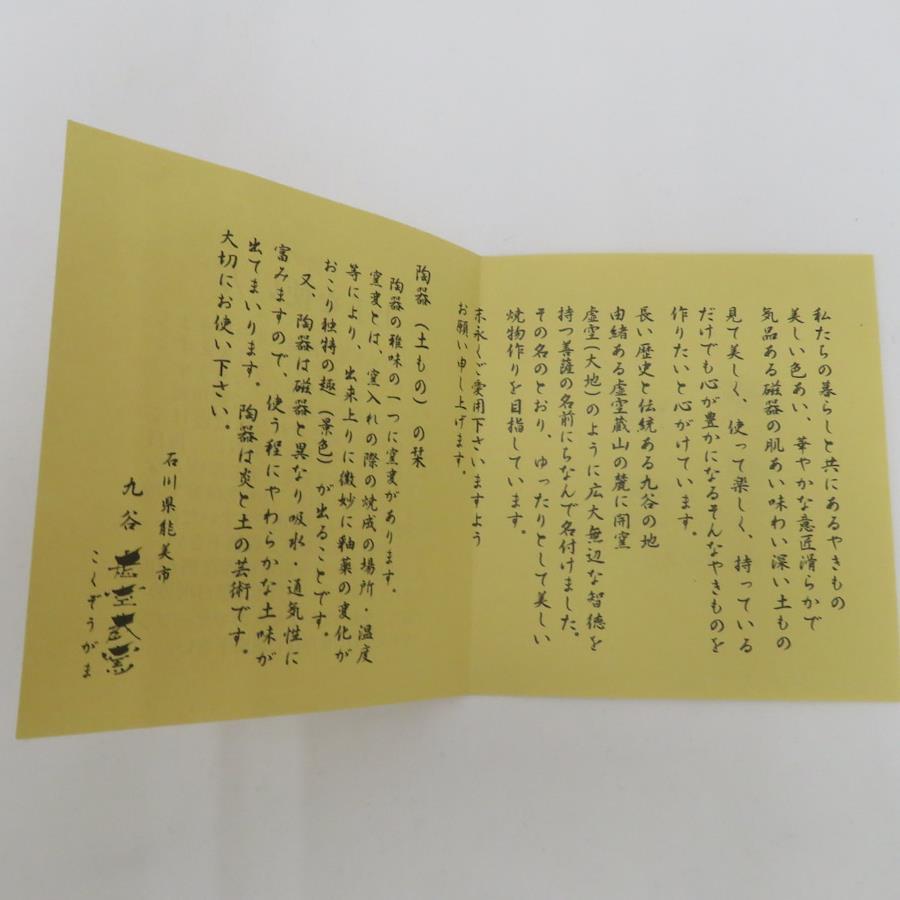 私たちの暮らしと共にあるやきもの
美しい色あい、華やかな意匠滑らかで
気品ある磁器の肌あい味わい深い土もの
見て美しく、使って楽しく、持っている
だけでも心が豊かになるそんなやきものを
作りたいと心がけています。
長い歴史と伝統ある九谷の地
由緒ある虚空蔵山の麓に開窯
虚空(大地)のように広大無辺な智徳を
持つ菩薩の名前にちなんで名付けました。
その名のとおり、ゆったりとして美しい
焼物作りを目指しています。
末永くご愛用下さいますよう
お願い申し上げます。
陶器(土もの)の栞
陶器の雅味の一つに窯変があります。
窯変とは、窯入れの際の焼成の場所・温度
等により、出来上りに微妙に釉薬の変化が
おこり独特の趣(景色)が出ることです。
又、陶器は磁器と異なり吸水・通気性に
富みますので、使う程にやわらかな土味が
出てまいります。陶器は炎と土の芸術です。
大切にお使い下さい。
石川県能美市
九谷 虚空蔵窯
こくぞうがま